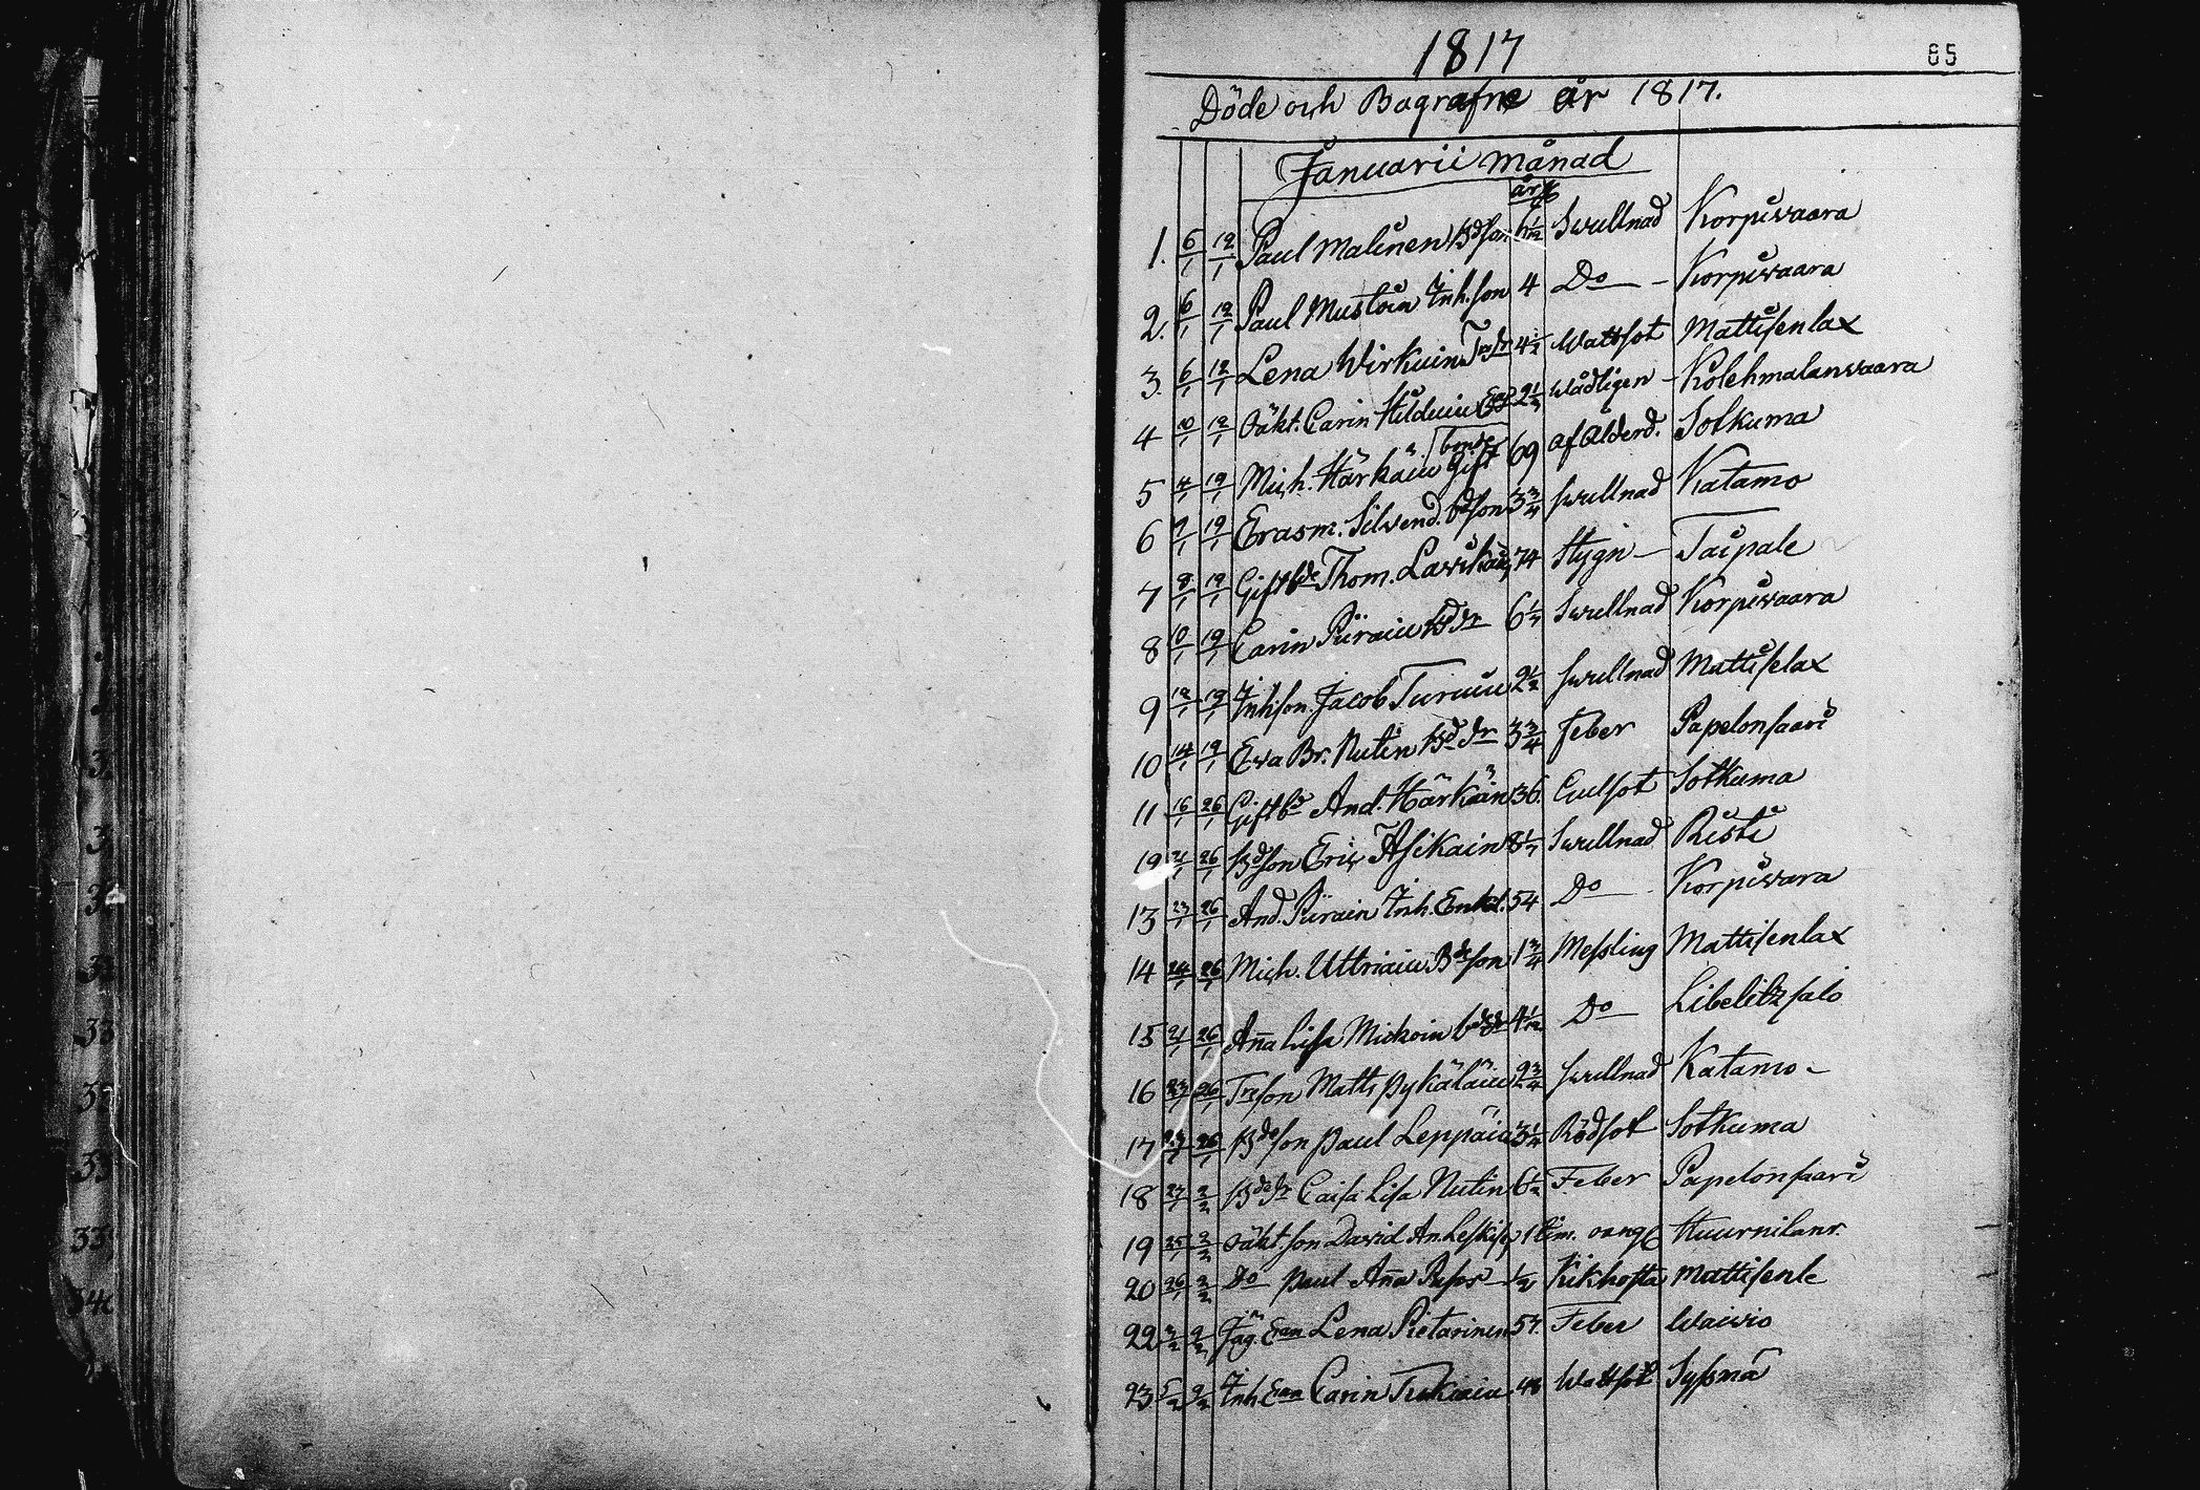 1817
85
Döde och Bagrafne år 1817.
Januarii månad
år
1. 6/1 12/1 Paul Malinen Bdson 6 1/12 Swullnad Korpivaara
2. 6/1 12/1 Paul Mustoin Inh.son 4 Do Korpivaara
3. 6/1 12/1 Lena Wirkuin 4 1/2 Wattsot Mattisenlax
4 10/1 12/1 oäkt. Carin 2 1/2 wådligen Kolehmalanvaara
5 4/1 19/1 Mich. Härkäin bonde Gift 69 af ålderd. Sotkuma
6 9/1 19/1 Erasm. Silvend. bdson 3 3/4 swullnad Katamo
7 8/1 19/1 Gift bde Thom. Lavikain 74 Stygn Taipale
8 10/1 19/1 Carin Piirain Bd dr 6 1/2 Swullnad Korpivaara
9 12/1 19/1 Inhson. Jacob Turuin 2 1/2 swullnad Mattiselax
10 14/1 19/1 Eva Br. Nutin Bd dr 3 3/4 feber Papelonsaari
11 16/1 26/1 Gift bd And. Härkäin 36. Gulsot Sotkuma
12 21/1 26/1 Bdson Eric Asikain 8 1/2 Swullnad Risti
13 23/1 26/1 And. Piirain Inh. Enkl. 54 Do Korpivara
14 24/1 26/1 Mich. Uttriain Bdeson 1 3/4 Messling Mattisenlax
15 21/1 26/1 Anna Lisa Mickoin 4 1/12 Do Libelitz salo
16 23/1 26/1 Trpson Matts Pykäläin 2 3/4 swullnad Katamo
17 23/1 26/1 Bdeson Paul Leppäin 3 1/4 Rödsot Sotkuma
18 27/1 2/2 Bde dr Caisa Lisa Nutin 6 1/2 Feber Papelonsaari
19 25/1 2/2 oäkt.son David An. 1 tim. Huurnilanv.
20 26/1 2/2 Do Paul Anna 1/2 Kikhosta Mattisenle
22 3/2 9/2 Jäg. Enn Lena Pietarinen 57. Feber Waivio
23 5/2 9/2 Inh. Enn Carin Turkiain 48 Wattsot Syssmä